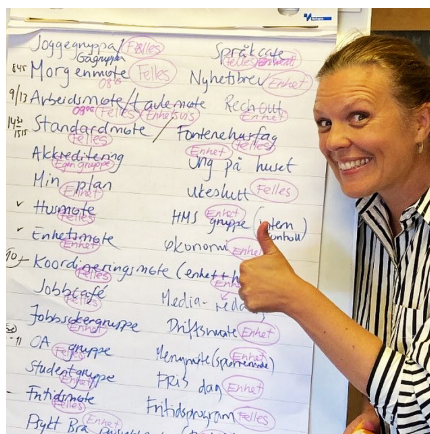 Joggegruppa/ Felles
Gågruppe
845 Morgenmøte Felles
9/13 Arbeidsmøte/Lavemøte
Felles Enhetsvis
Standardmøte /
Felles
Akkreditering
Egen gruppe
Min plan
Enhet
Husmøte
Felles
Enhetsmøte
Enhet
Koordineringsmøte (enhet +
Jobbcafé
Felles
Jobbsøkergruppe
Enhet
OA gruppe
Felles
Studentgruppe
Enhet
Fritidsmøte
Felles
Psykt Bra
Enhet
Språkcafe
Felles
Nyhetsbrev Enhet
Reach out
Enhet
Fontenehusfag
Enhet Felles
Ung på huset
Ukeslutt Felles
HMS gruppe (intern
Enhet
Økonomi Enhet
Media-
Driftsmøte Enhet
Menymøte
Enhet
Fris dag Enhet
Fritidsprogram Felles